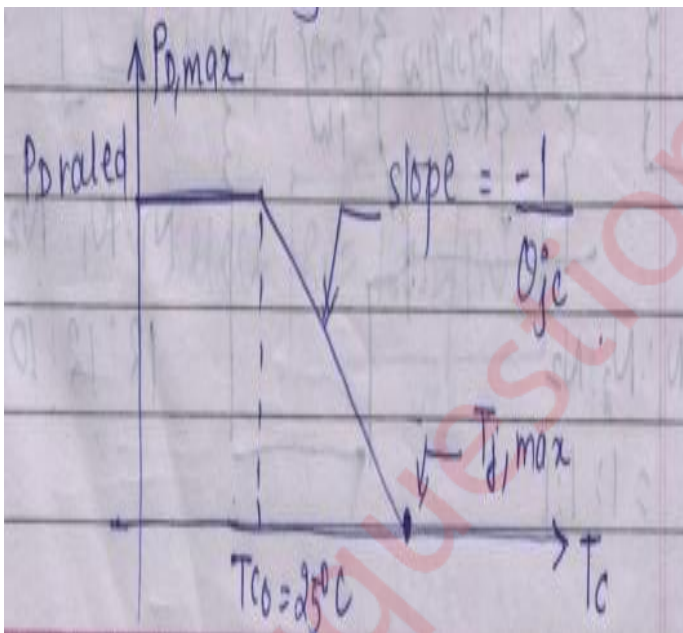 PD,max
PD rated
slope = -1/θjc
Tj, max
Tc0 = 25°C
Tc
question